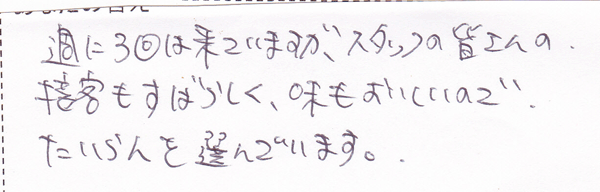 週に3回は来ていますが、スタッフの皆さんの
接客もすばらしく、味もおいしいので、
たいらんを選んでいます。